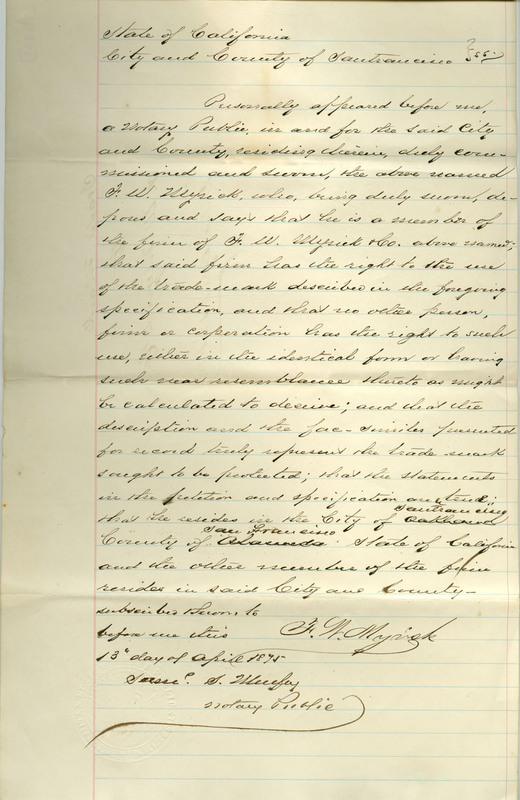 State of California
City and County of Sanfrancisco } ss.
Personally appeared before me,
a Notary Public, in and for the said City
and County, residing therein, duly com-
missioned and sworn, the above named
F. W. Myrick, who, being duly sworn, de-
poses and says that he is a member of
the firm of F. W. Myrick & Co. above named;
that said firm has the right to the use
of the trade-mark described in the foregoing
specification, and that no other person,
firm or corporation has the right to such
use, either in the identical form or having
such near resemblance thereto as might
be calculated to deceive; and that the
description and the fac-similes presented
for record truly represent the trade-mark
sought to be protected; that the statements
in the petition and specification are true;
Sanfrancisco
that he resides in the City of Oakland
San Francisco
County of Alameda State of California
and the other member of the firm
resides in said City and County-
subscribed & sworn to
before me this F. W. Myrick
13" day of April 1875
Saml. S. Murfey
Notary Public